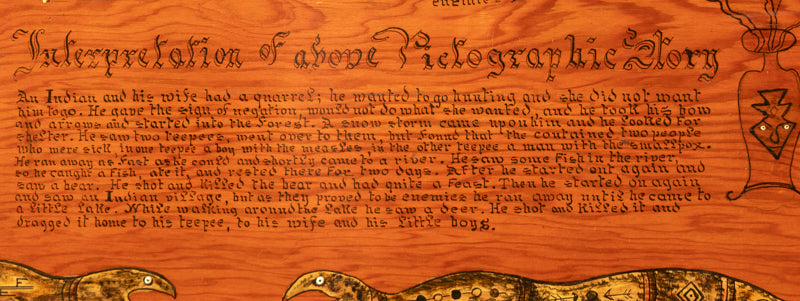 Interpretation of above Pictographic Story
An Indian and his wife had a quarrel; he wanted to go hunting and she did not want
him to go. He gave the sign of negation, would not do what she wanted, and he took his bow
and arrows and started into the forest. A snow storm came upon him and he looked for
shelter. He saw two teepees, went over to them, but found that the contained two people
who were sick in one teepee a boy with the measles in the other teepee a man with the smallpox.
He ran away as fast as he could and shortly came to a river. He saw some fish in the river,
so he caught a fish, ate it, and rested there for two days. After he started out again and
saw a bear. He shot and killed the bear and had quite a feast. Then he started on again
and saw an Indian village, but as they proved to be enemies he ran away until he came to
a little lake. While walking around the lake he saw a deer. He shot and killed it and
dragged it home to his teepee, to his wife and his little boys.